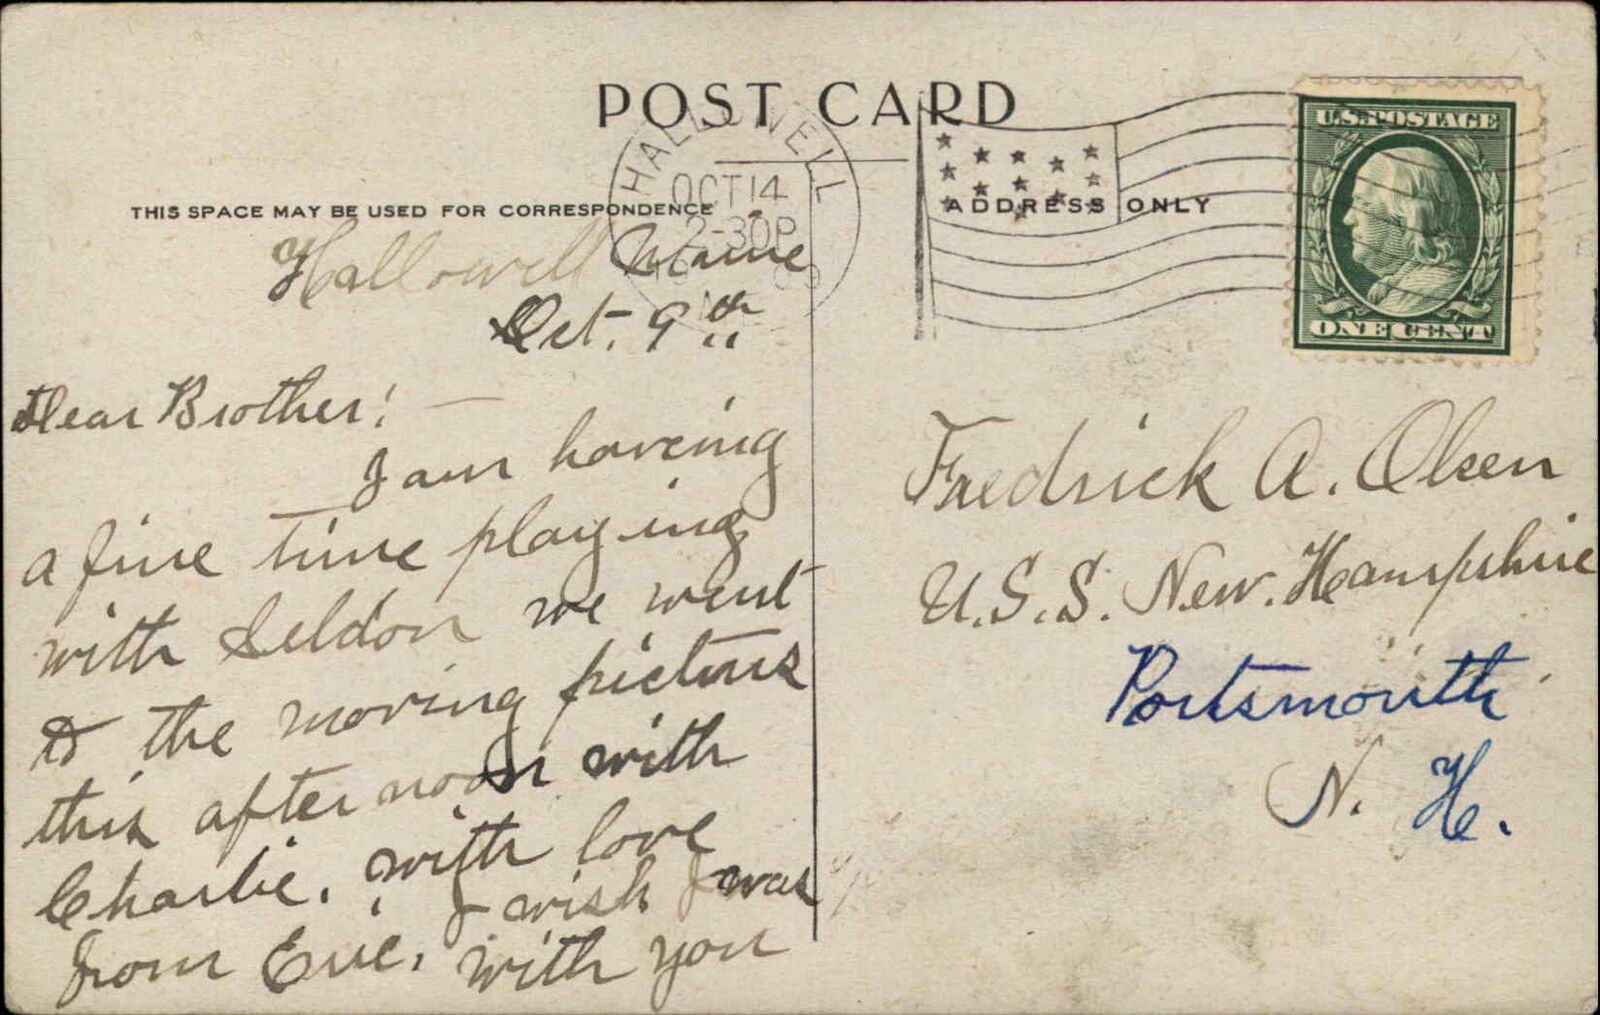 POST CARD
THIS SPACE MAY BE USED FOR CORRESPONDENCE
ADDRESS ONLY
HALLOWELL
OCT 14
2-30P
U.S. POSTAGE
ONE CENT
Hallowell Maine
Oct. 9th
Dear Brother! —
I am haveing
a fine time playing
with Seldon we went
to the moving pictures
this afternoon with
Charlie. with love
from Eric. I wish I was
with you
Fredrick A. Olsen
U.S.S. New. Hampshire
Portsmouth
N. H.